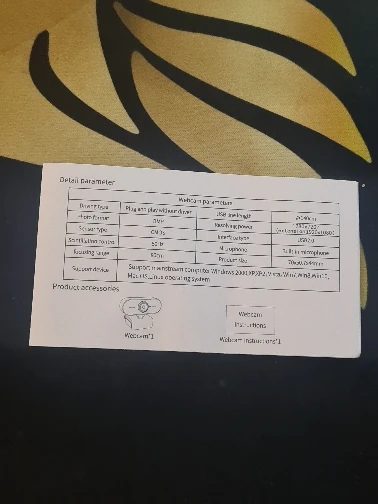 Detail parameter
Webcam parameters
Driving type Plug and play without driver USB line length
Photo format Resolving power
Sensor type CMOS Interface type USB2.0
Scintillation control 50Hz Microphone Built in microphone
Focusing range Product size
Support device Support mainstream computer Windows 2000,XP,XP2,Vista,Win7,Win8,Win10,
operating system
Product accessories
Webcam
Instructions
Webcam*1 Webcam Instructions*1